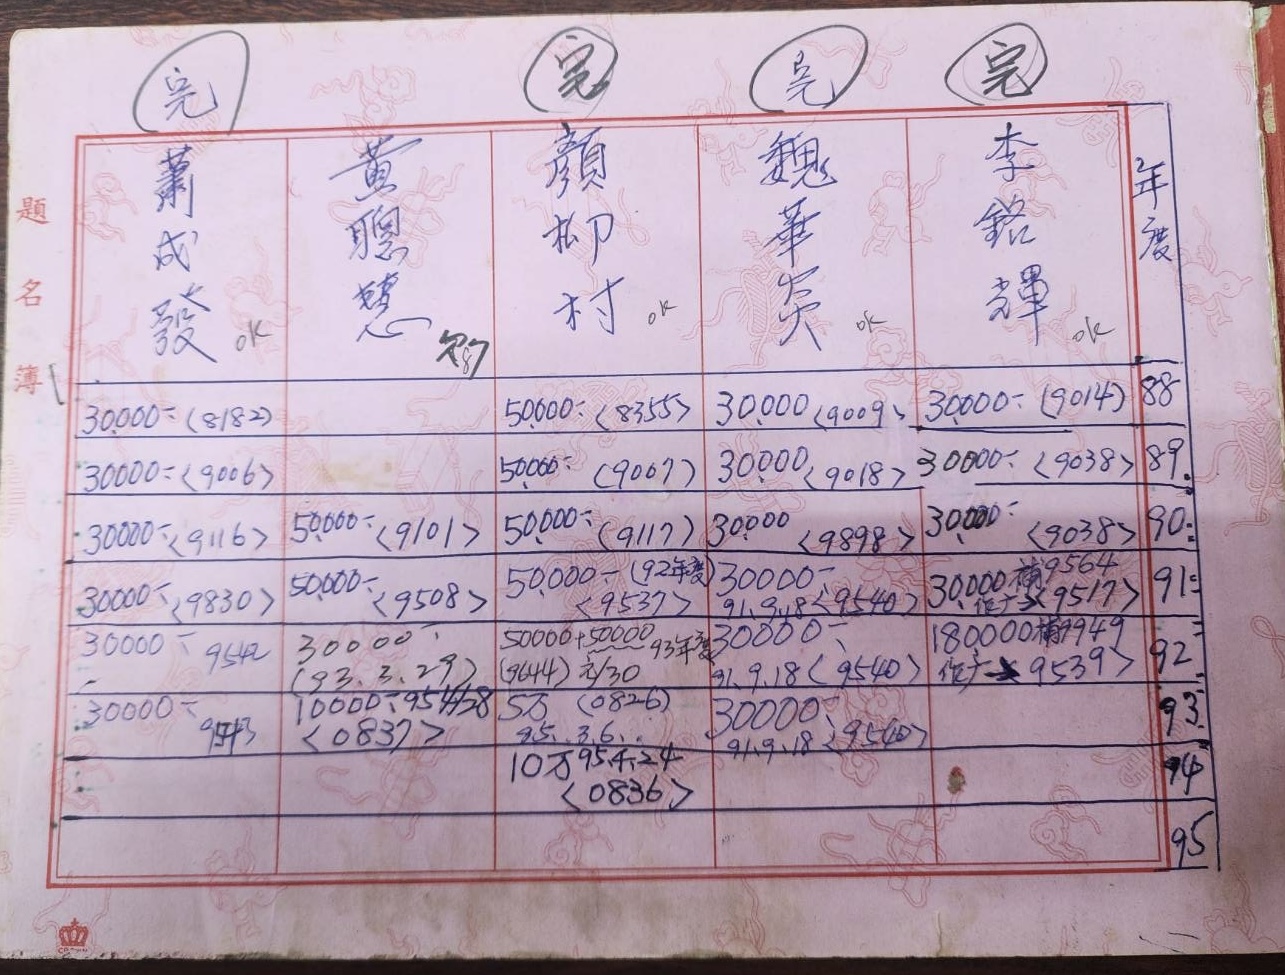 完
完
完
完
年度
李銘輝
ok
魏華炎
ok
顏柳村
ok
黃聰慧
欠87
蕭成發
ok
題名簿
30000-(8182)
50000-<8355>
30000<9009>
30000-(9014)
88
30000-<9006>
50000-(9007)
30000<9018>
30000-<9038>
89
30000-<9116>
50000-<9101>
50000-(9117)
30000<9898>
30000-<9038>
90
30000-<9830>
50000-<9508>
50000-(92年度)
<9537>
30000-
91.9.18<9540>
30000補9564
作廢→<9517>
91
30000-9542
30000-
(93.3.29)
50000+50000 93年度
(9644) 元/30
30000-
91.9.18<9540>
180000補9949
→9539>
92
30000-
9543
10000-95.4.28
<0837>
5万(0826)
95.3.6.
30000-
91.9.18<9540>
93
10万95.4.24
<0836>
94
95